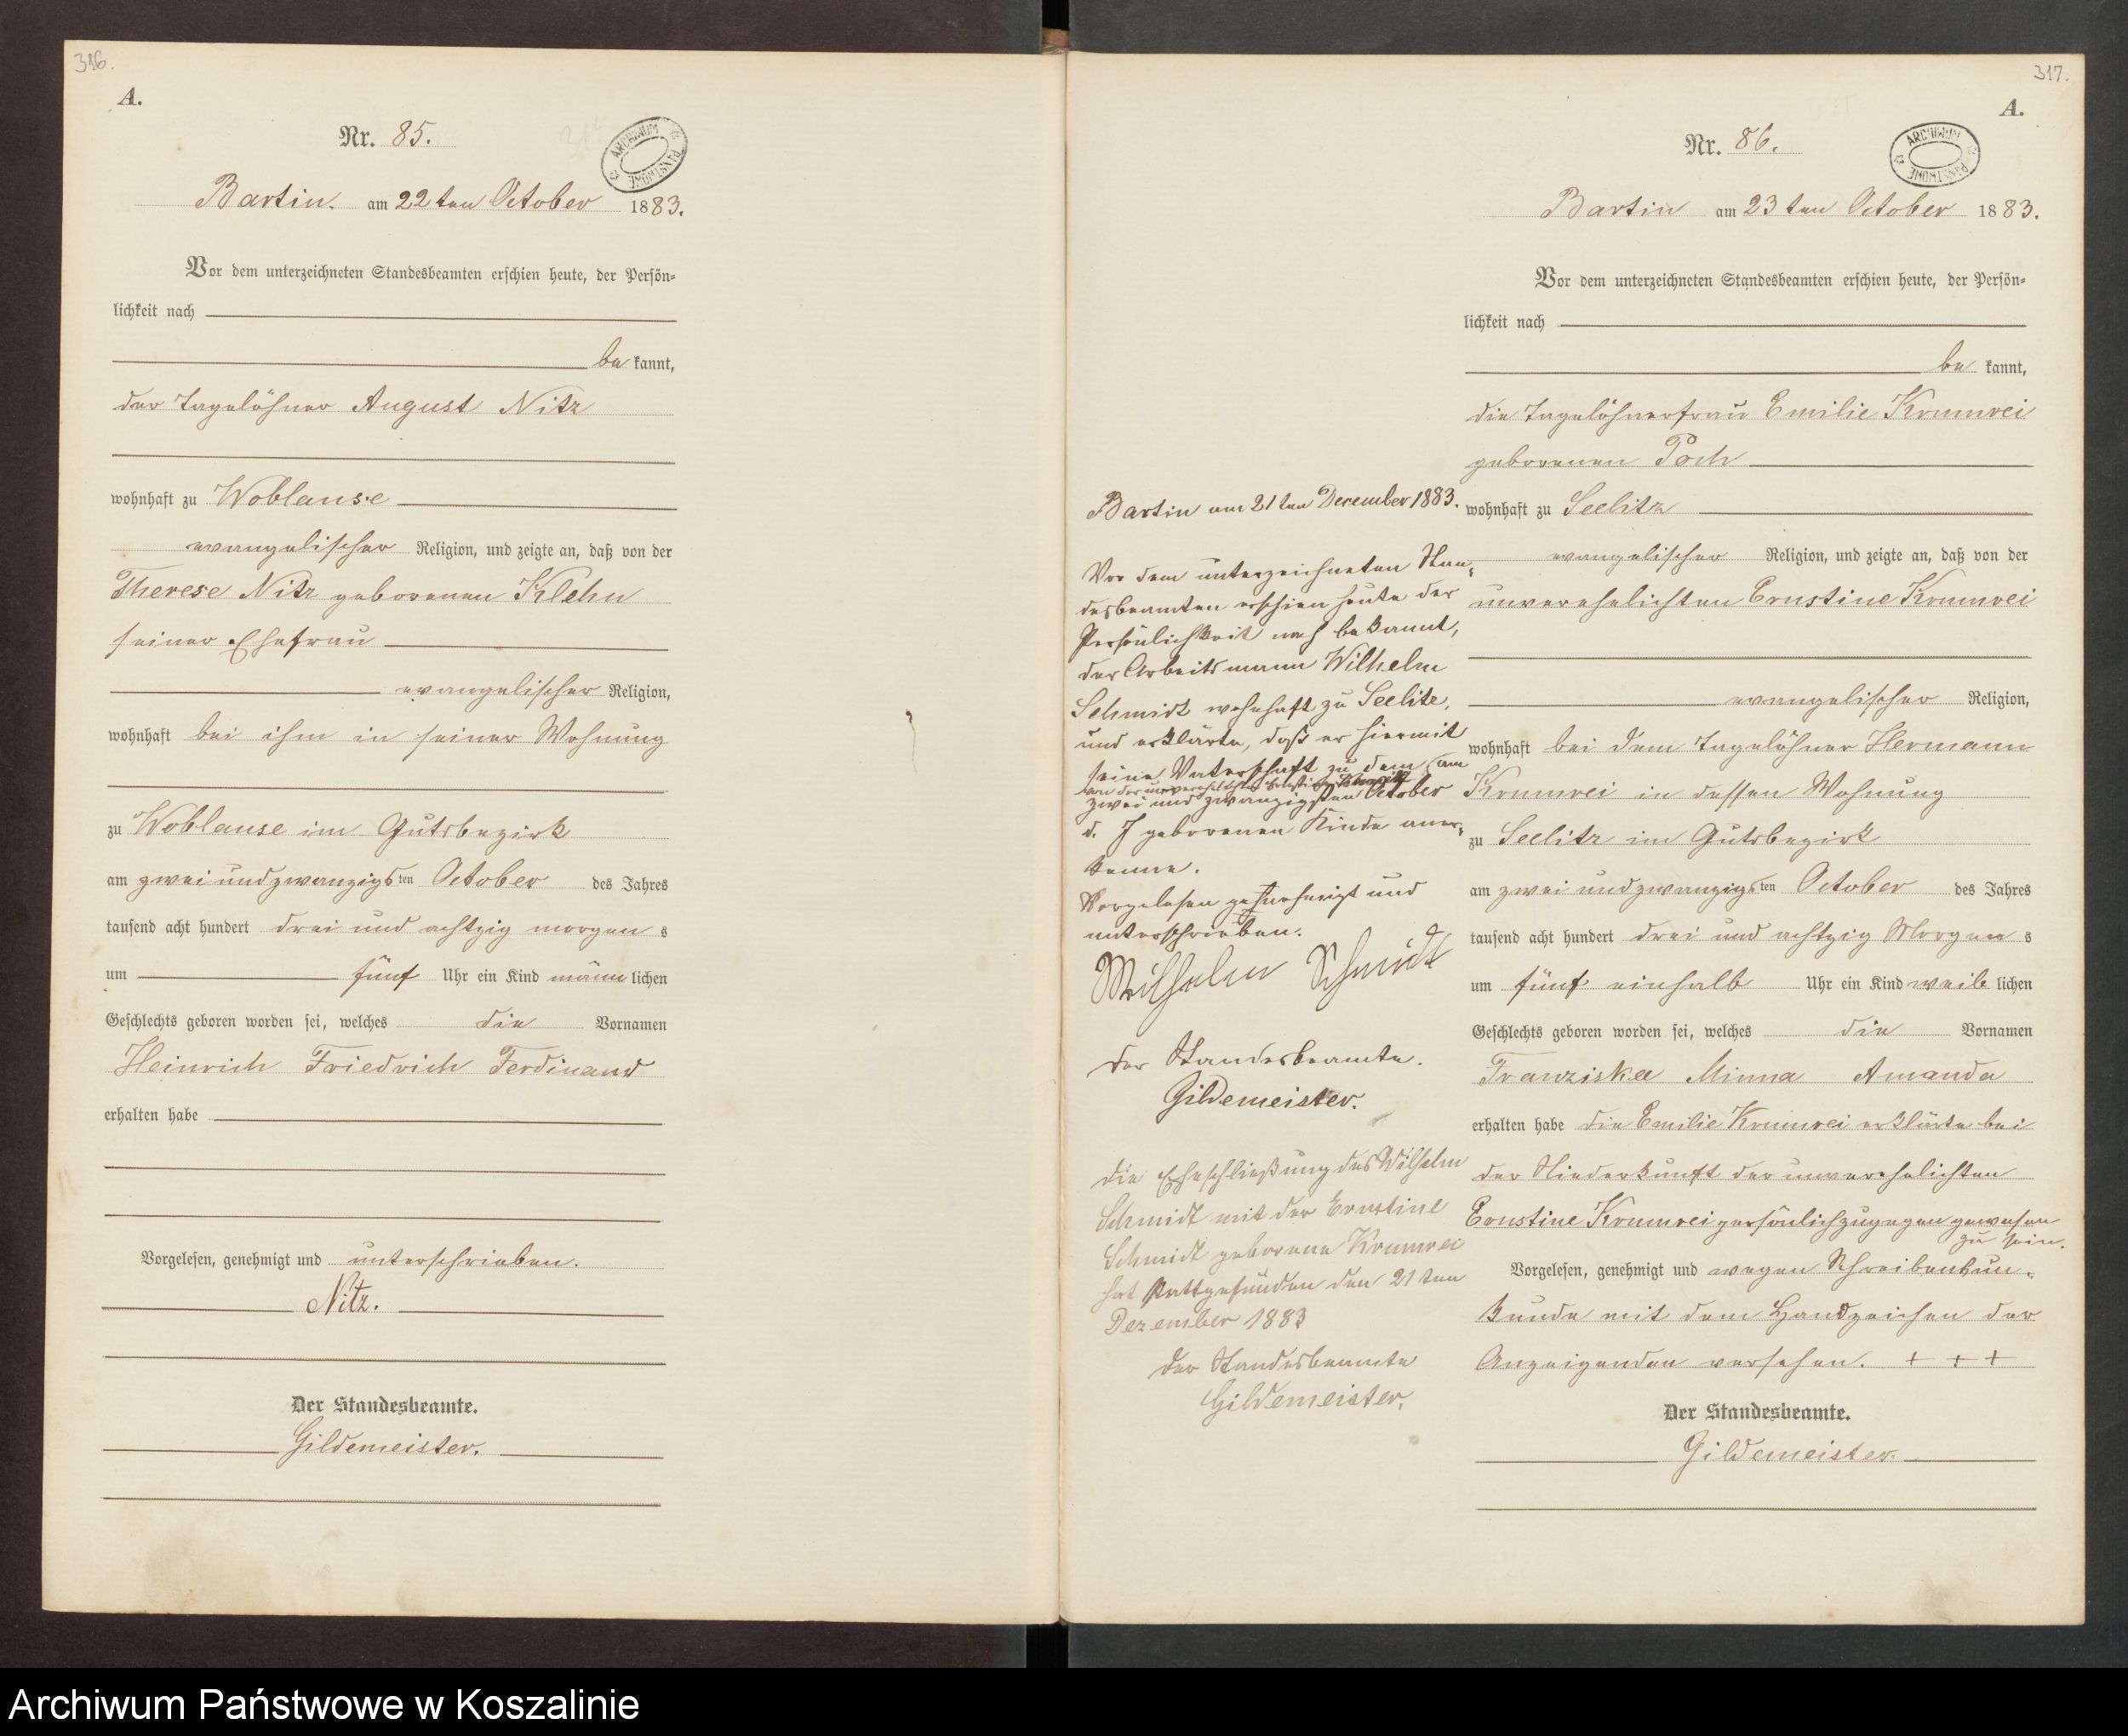 316.
A.
Nr. 85.
ARCHIWUM PAŃSTWOWE
Bartin. am 22ten October 1883.
Vor dem unterzeichneten Standesbeamten erschien heute, der Persön-
lichkeit nach
be kannt,
der Tagelöhner August Nitz
wohnhaft zu Woblanse
evangelischer Religion, und zeigte an, daß von der
Therese Nitz geborenen Klehn
seiner Ehefrau
evangelischer Religion,
wohnhaft bei ihm in seiner Wohnung
zu Woblanse im Gutsbezirk
am zwei und zwanzigsten October des Jahres
tausend acht hundert drei und achtzig morgens
um fünf Uhr ein Kind männlichen
Geschlechts geboren worden sei, welches die Vornamen
Heinrich Friedrich Ferdinand
erhalten habe
Vorgelesen, genehmigt und unterschrieben.
Nitz.
Der Standesbeamte.
Gildemeister.
317.
A.
Nr. 86.
ARCHIWUM PAŃSTWOWE
Bartin am 23ten October 1883.
Vor dem unterzeichneten Standesbeamten erschien heute, der Persön-
lichkeit nach
be kannt,
die Tagelöhnerfrau Emilie Krumrei
geborenen Poch
wohnhaft zu Seelitz
evangelischer Religion, und zeigte an, daß von der
unverehelichten Ernstine Krumrei
evangelischer Religion,
wohnhaft bei dem Tagelöhner Hermann
Krumrei in dessen Wohnung
zu Seelitz im Gutsbezirk
am zwei und zwanzigsten October des Jahres
tausend acht hundert drei und achtzig Morgens
um fünf einhalb Uhr ein Kind weiblichen
Geschlechts geboren worden sei, welches die Vornamen
Franziska Minna Amanda
erhalten habe die Emilie Krumrei erklärte bei
der Niederkunft der unverehelichten
Ernstine Krumrei persönlich zugegen gewesen
zu sein.
Vorgelesen, genehmigt und wegen Schreibenskun-
kunde mit dem Handzeichen der
Anzeigenden versehen. + + +
Der Standesbeamte.
Gildemeister.
Bartin am 21ten December 1883.
Vor dem unterzeichneten Stan-
desbeamten erschien heute der
Persönlichkeit nach bekannt,
der Arbeitsmann Wilhelm
Schmidt wohnhaft zu Seelitz,
und erklärte, daß er hiermit
seine Vaterschaft zu dem am
von der unverehelichten Ernstine Krumrei
zwei und zwanzigsten October
d. J geborenen Kinde aner-
kenne.
Vorgelesen genehmigt und
unterschrieben.
Wilhelm Schmidt
Der Standesbeamte.
Gildemeister.
Die Eheschließung des Wilhelm
Schmidt mit der Ernstine
Schmidt geborene Krumrei
hat stattgefunden den 21ten
Dezember 1883
Der Standesbeamte
Gildemeister.
Archiwum Państwowe w Koszalinie